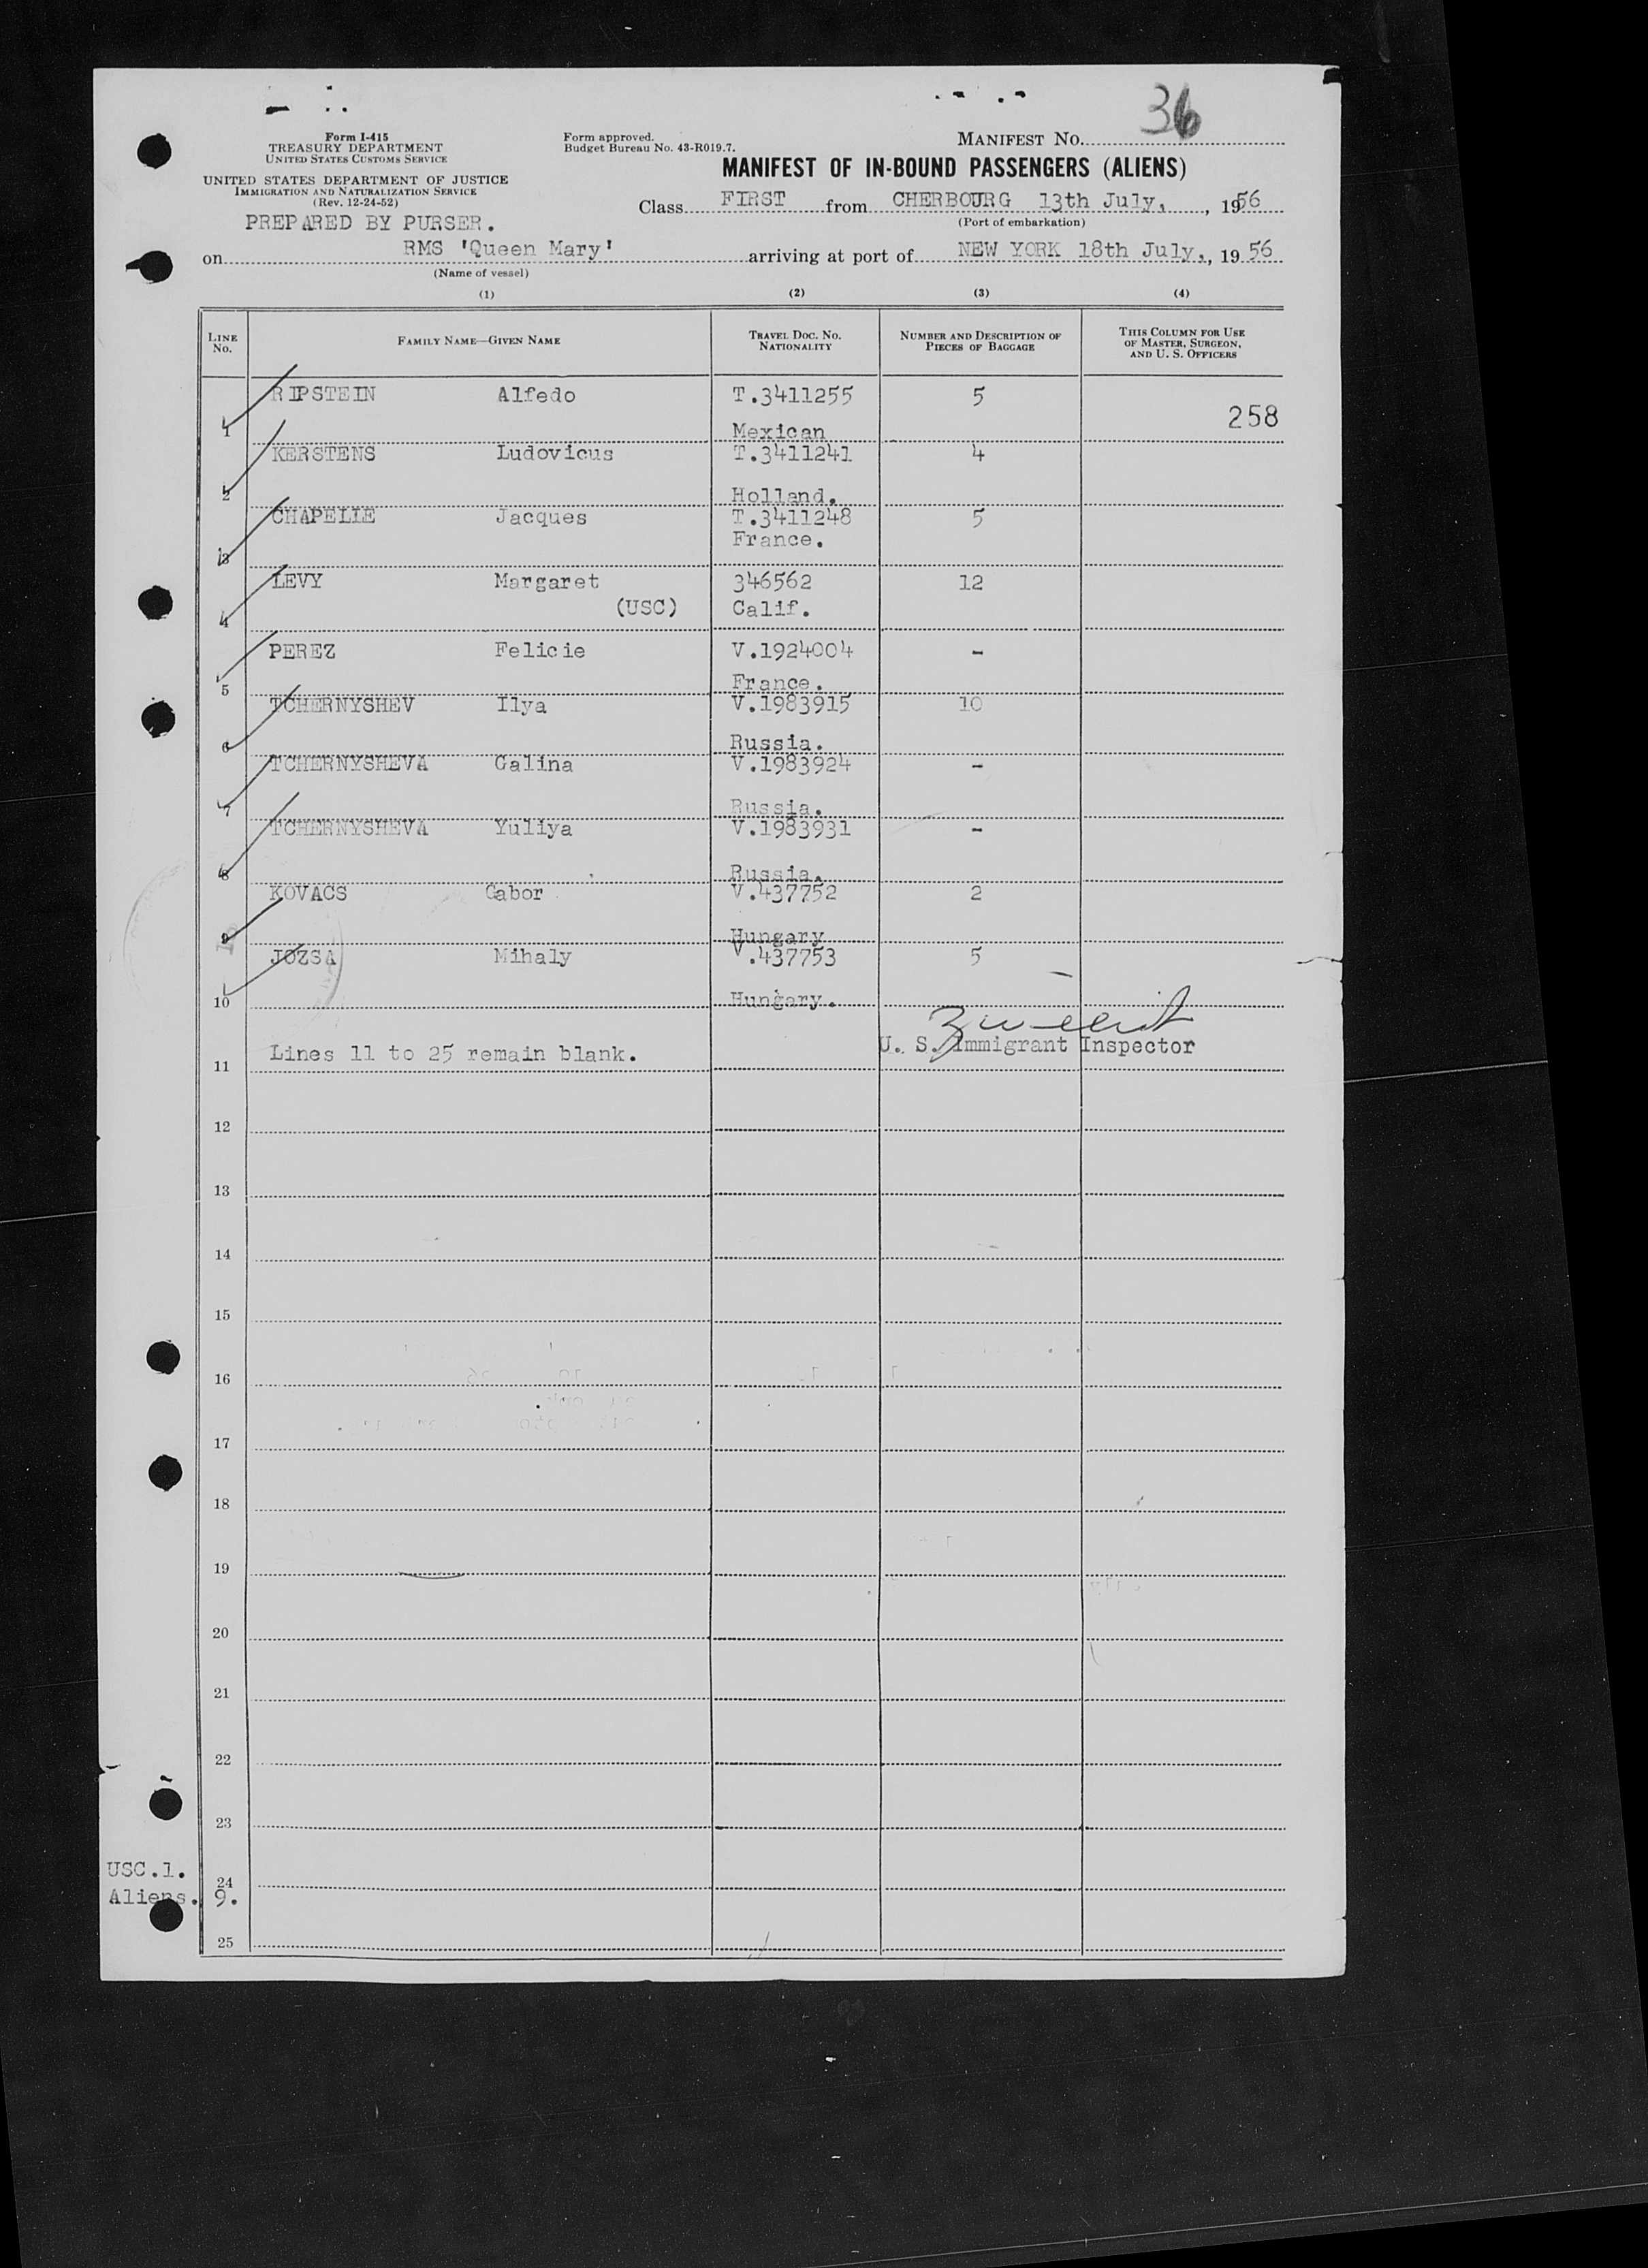 36
Form I-415
TREASURY DEPARTMENT
UNITED STATES CUSTOMS SERVICE
UNITED STATES DEPARTMENT OF JUSTICE
IMMIGRATION AND NATURALIZATION SERVICE
(Rev. 12-24-52)
Form approved.
Budget Bureau No. 43-R019.7.
MANIFEST No.
MANIFEST OF IN-BOUND PASSENGERS (ALIENS)
Class FIRST from CHERBOURG 13th July, , 1956
(Port of embarkation)
PREPARED BY PURSER.
on RMS 'Queen Mary' arriving at port of NEW YORK 18th July, , 19 56
(Name of vessel)
(1) (2) (3) (4)
LINE No. FAMILY NAME—GIVEN NAME TRAVEL DOC. No. NATIONALITY NUMBER AND DESCRIPTION OF PIECES OF BAGGAGE THIS COLUMN FOR USE OF MASTER, SURGEON, AND U. S. OFFICERS
RIPSTEIN Alfedo T.3411255 5
258
1 Mexican
KERSTENS Ludovicus T.3411241 4
2 Holland.
CHAPELLE Jacques T.3411248 5
France.
3
LEVY Margaret 346562 12
(USC) Calif.
4
PEREZ Felicie V.1924004 -
5 France.
TCHERNYSHEV Ilya V.1983915 10
6 Russia.
TCHERNYSHEVA Galina V.1983924 -
7 Russia.
TCHERNYSHEVA Yuliya V.1983931 -
8 Russia.
KOVACS Gabor V.437752 2
9 Hungary
JOZSA Mihaly V.437753 5
10 Hungary.
Lines 11 to 25 remain blank. U. S. Immigrant Inspector
11
12
13
14
15
16
17
18
19
20
21
22
23
USC.1.
24
Aliens. 9.
25